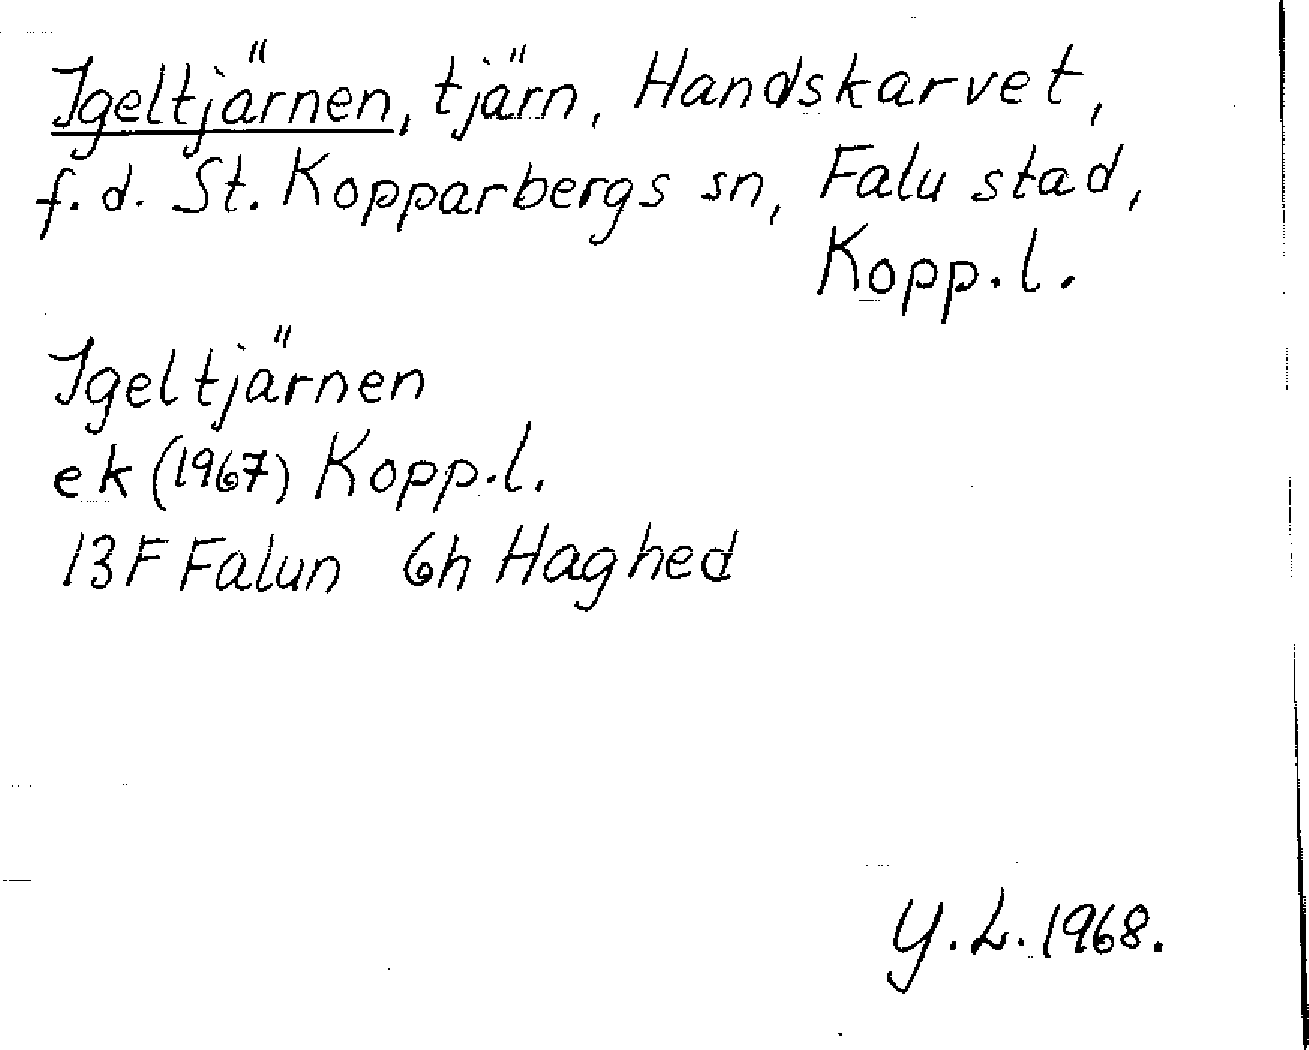 Igeltjärnen, tjärn, Handskarvet,
f.d. St. Kopparbergs sn, Falu stad,
Kopp.l.
Igeltjärnen
ek (1967) Kopp.l.
13F Falun 6h Haghed
Y.L. 1968.